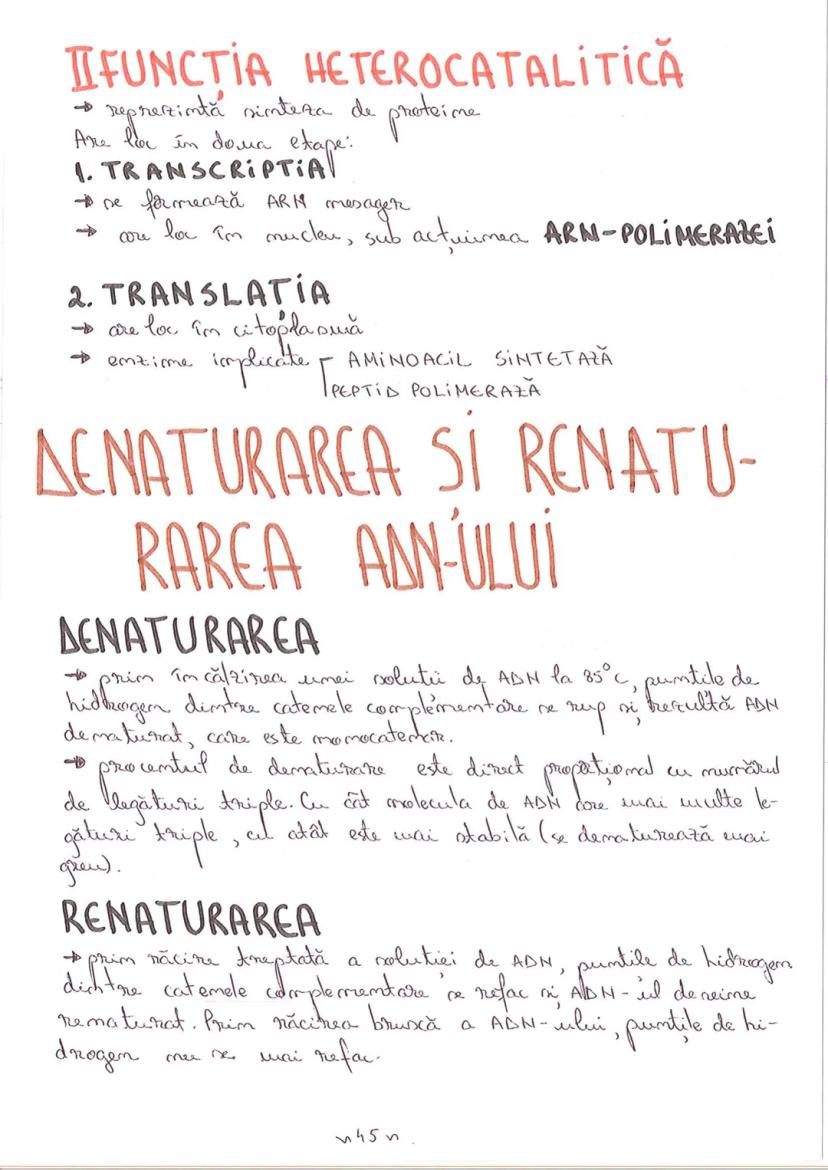 II FUNCȚIA HETEROCATALITICĂ
→ reprezintă sinteza de proteine
Are loc în doua etape:
1. TRANSCRIPTIA
→ se formează ARN mesager
→ are loc în nucleu, sub acțuinea ARN-POLIMERAZEI
2. TRANSLATIA
→ are loc în citoplasmă
→ enzime implicate AMINOACIL SINTETAZĂ
PEPTID POLIMERAZĂ
DENATURAREA SI RENATU-
RAREA ADN-ULUI
DENATURAREA
→ prin încălzirea unei solutii de ADN la 85°C, puntile de
hidrogen dintre catenele complementare se rup si rezultă ADN
denaturat, care este monocatenar.
→ procentul de denaturare este direct proporțional cu numărul
de legături triple. Cu cât molecula de ADN are mai multe le-
gături triple, cu atât este mai stabilă (se denaturează mai
greu).
RENATURAREA
→ prin răcire treptată a solutiei de ADN, puntile de hidrogen
dintre catenele complementare se refac si ADN-ul devine
renaturat. Prin răcirea bruscă a ADN-ului, punțile de hi-
drogen nu se mai refac.
~45~